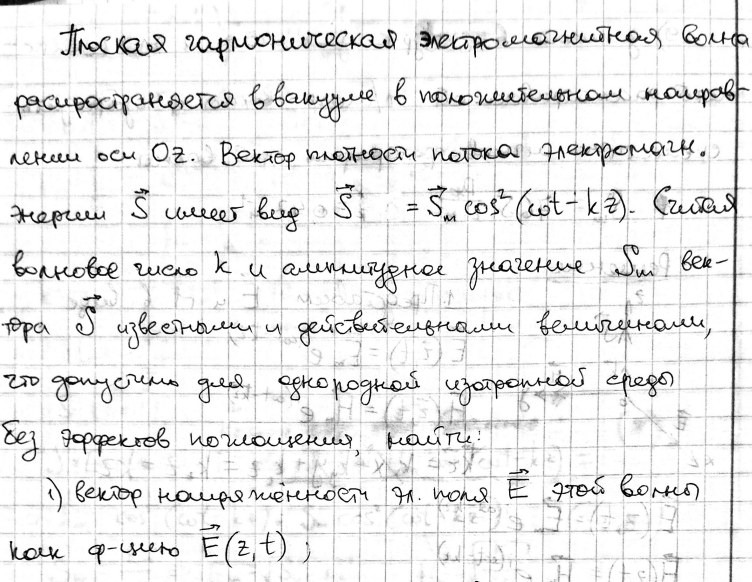 Плоская гармоническая электромагнитная волна
распространяется в вакууме в положительном направ-
лении оси Oz. Вектор плотности потока электромагн.
энергии S⃗ имеет вид S⃗ = S⃗ₘ cos² (ωt - kz). Считая
волновое число k и амплитудное значение Sₘ век-
тора S⃗ известными и действительными величинами,
что допустимо для однородной изотропной среды
без эффектов поглощения, найти:
1) вектор напряжённости эл. поля E⃗ этой волны
как ф-цию E⃗(z,t);